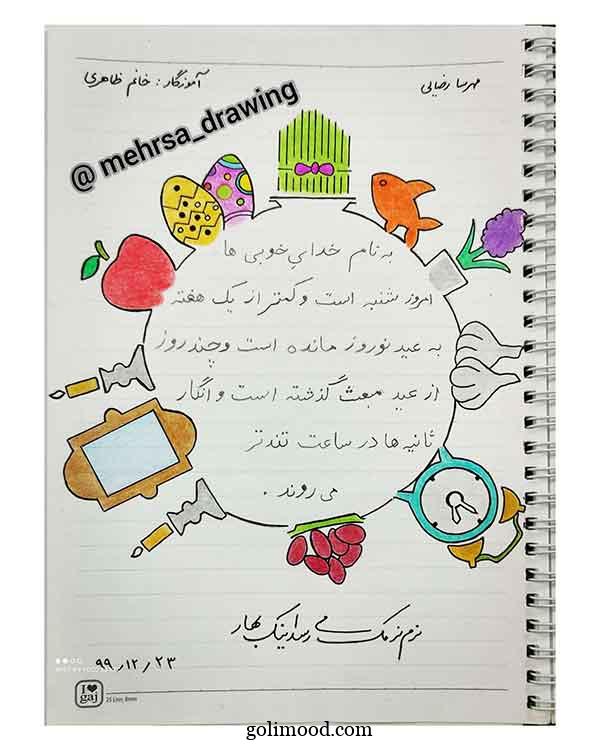 مهرسا رضایی
آموزگار: خانم طاهری
@ mehrsa_drawing
به نام خدایِ خوبی ها
امروز شنبه است و کمتر از یک هفته
به عید نوروز مانده است و چند روز
از عید مبعث گذشته است و انگار
ثانیه ها در ساعت تندتر
می روند .
نرم نرمک می رسد اینک بهار
۹۹/۱۲/۲۳
I ♥ gaj
25 Line, 8mm
golimood.com